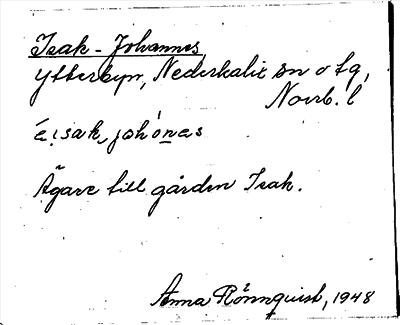 Isak-Johannes
Ytterbyn, Nederkalix sn o tg,
Norrb. l
johònas
Ägare till gården Isak.
Anna Rönnquist, 1948